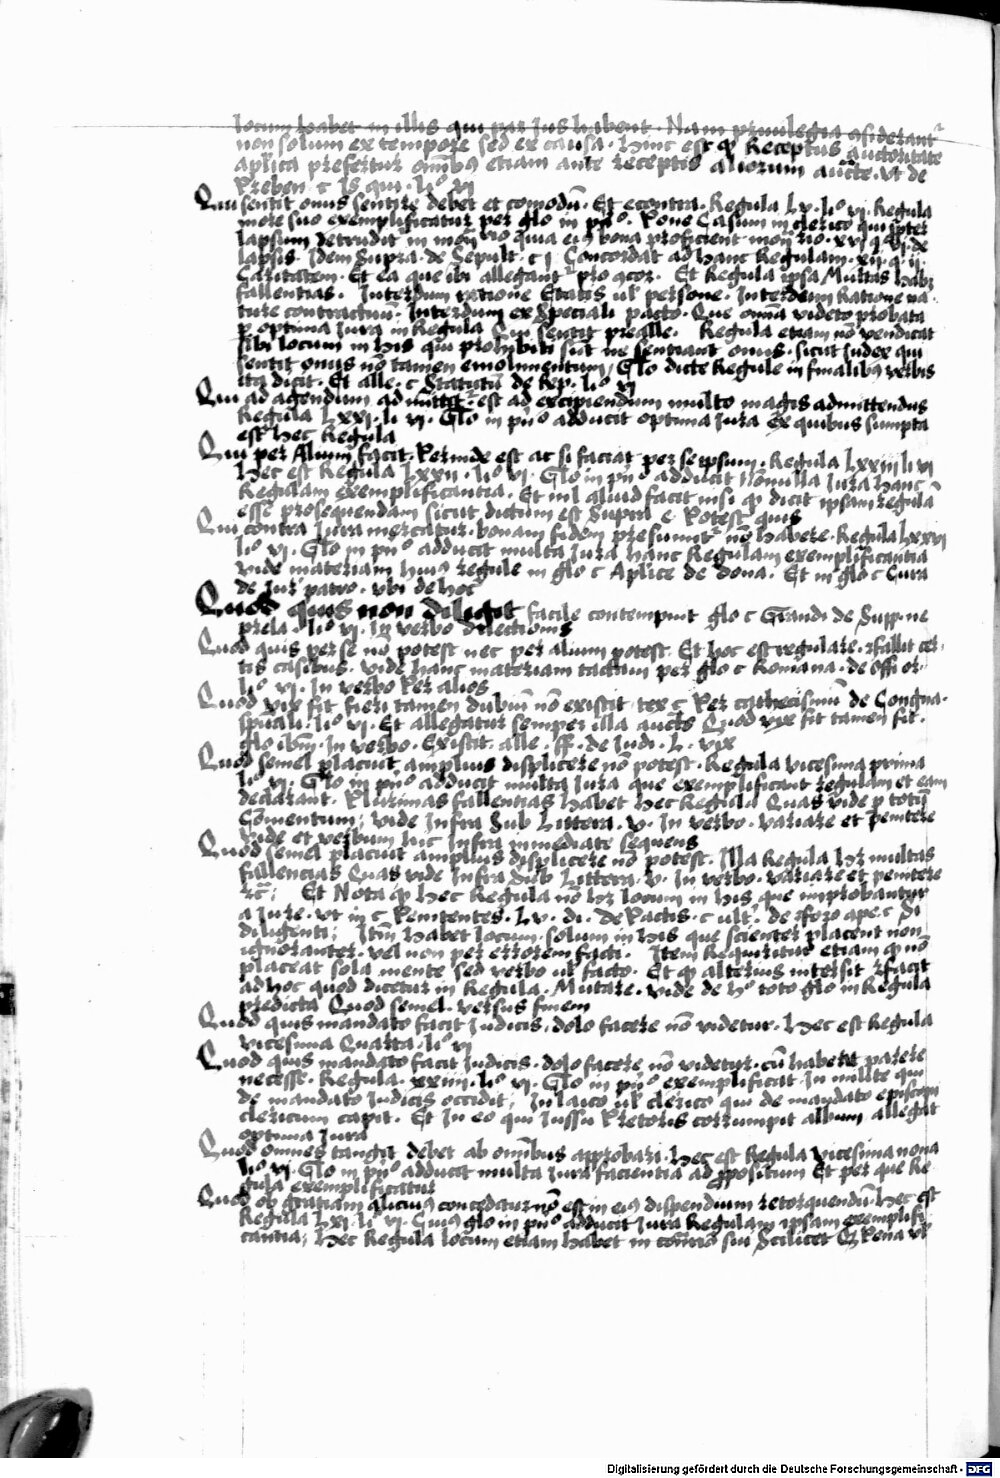 locum habet in illis qui par Jus habent · Nam priuilegia ꝯsiderantᷣ
non solum ex tempore sed ex causa · Hinc est ꝙ Receptus auctoritate
aplica prefertur omībꝯ etiam ante receptis aliorum aucte · vt de
Preben c Is qui · liº vi
Qui sentit onus sentire debet et comodū · Et econtra · Regula Lv · liº vi · Regula
more suo exemplificatur per glo in pnº · Pone Casum in clerico qui
lapsum detrudit in qua eiꝯ bona proficient · xvi q vi · de
lapsis Idem Supra · de Sepult · c j Concordat ad hanc Regulam · xij · q · ij ·
Caritatem · Et ea que ibi allegantᷣ pro ꝯcor · Et Regula ipsa Multas habꝫ
fallentias · Interdum ratione Etatis ul' persone · Interdum Ratione na
ture contractus · Interdum ex speciali pacto · Que omnia videto probata
p optima Jura in Regula Qui sentit preallꝫ · Regula etiam nō vendicat
sibi locum in his qui prohibiti sūt ne sentiant onus · sicut Judex qui
sentit onus nō tamen emolumentum / Glo dicte Regule in finalibꝯ verbis
ita dicit · Et alle · c Statutū de Rep · liº vi
Qui ad agendum admittitᷣ est ad excipiendum multo magis admittendus
Regula Lxxi · li vi · Glo in pnº adducit optima Jura ex quibus sumpta
est hec Regula
Qui per Alium facit · Perinde est ac si faciat per seipsum · Regula Lxxij li vi
Hec est Regula Lxxii · liº vi · Glo in pnº adducit Nonnulla Jura hanc
Regulam exemplificantia · Et nil aliud facit nisi ꝙ dicit ipsam regulā
esse prosequendam sicut dictum est Supra e Potest quis
Qui contra Jura mercatur · bonam fidem presumitᷣ nō habere · Regula Lxxxij
liº vi · Glo in pnº adducit multa Jura hanc Regulam exemplificantia
vide materiam huiꝯ regule in glo c Aplice de dona · Et in glo c Cura
de Jur patro · vbi de hoc
Quod quis non diligit facile contempnit glo c Grandi de Supp · ne
prela · liº vi · In verbo dilectionis
Quod quis per se nō potest nec per alium potest · Et hoc est regulare · ꝛ fallit cer
tis casibus · vide hanc materiam tactam per glo c Romana · de offi or ·
liº vi · In verbo Per alios
Quod vix fit fieri tamen dubiū nō existit · tex c Per cathecismū de Cogna ·
spuali · liº vi · Et allegatur semper illa aucte Quod vix fit tamen fit ·
glo ibm̄ · In verbo · Existit · alle · ff · de Judi · L · vix
Quod semel placuit amplius displicere nō potest · Regula vicesima prima
liº vi · Glo in pnº adducit multa Jura que exemplificant regulam et eam
declarant · Plurimas fallentias habet hec Regula Quas vide p totū
Cōmentum ; vide Infra Sub Littera · v · In verbo · variare et penitere
vide et verbum huc Infra immediate sequens
Quod semel placuit amplius displicere nō potest · Illa Regula hꝫ multas
fallencias Quas vide Infra Sub Littera · v · In verbo · variare et penitere
ꝛcᷓ ; Et Nota ꝙ hec Regula nō hꝫ locum in his que improbantur
a Jure · vt in c Penitentes · Lv · di · De Pactis · c ult' · de foro ꝯpe c Si
diligenti ; Itm̄ habet locum solum in his que scienter placent non
ignoranter · vel non per errorem facti · Item Requiritur etiam ꝙ nō
placeat sola mente sed verbo ul' facto · Et ꝙ alterius intersit ꝛ facit
ad hoc quod dicetur in Regula · Mutare · vide de hº toto glo in Regula
predicta Quod semel · versus finem
Quod quis mandato facit Judicis , dolo facere nō videtur · Hec est Regula
vicesima Quarta · liº vi
Quod quis mandato facit Judicis · dolo facere nō videtur · cū habeat parere
necesse · Regula · xxiiij · liº vi · Glo in pnº exemplificat · In milite qui
de mandato Judicis occidit ; In laico ul' clerico qui de mandato episcopi
clericum capit · Et In eo qui Jussu Pretoris corrumpit album allegat
optima Jura
Quod omnes tangit debet ab omībus approbari · Hec est Regula vicesima nona
liº vi · Glo in pnº adducit multa Jura facientia ad ꝓpositum Et per que Re
gula exemplificatur
Quod ob gratiam alicuiꝯ conceditur nō est in eiꝯ dispendium retorquendū · Hec est
Regula Lxi · li vi · Cuiꝯ glo in pnº adducit Jura Regulam ipsam exemplifi
cantia ; Hec Regula locum etiam habet in contrario suo Scilicet Pena ul'
Digitalisierung gefördert durch die Deutsche Forschungsgemeinschaft - DFG